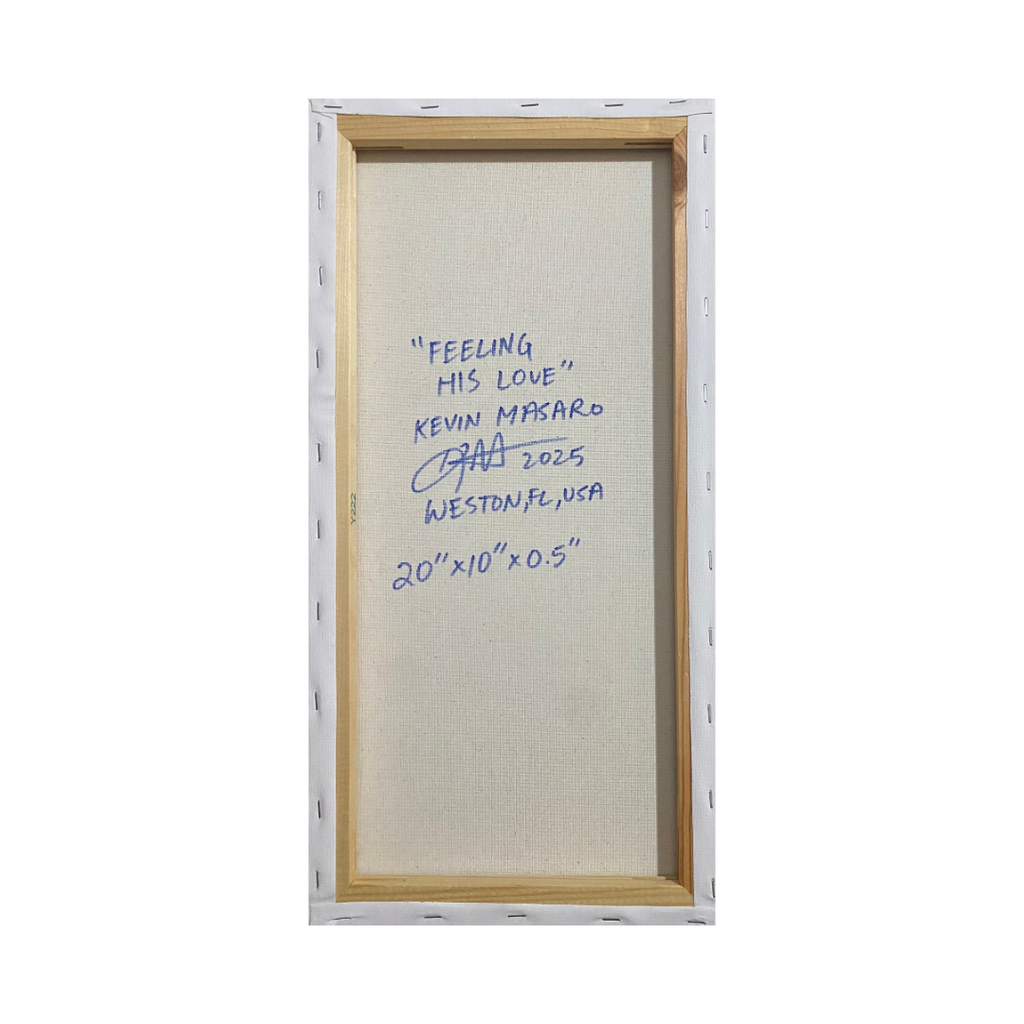 "FEELING
HIS LOVE"
KEVIN MASARO
2025
WESTON, FL, USA
20" x 10" x 0.5"
Y222